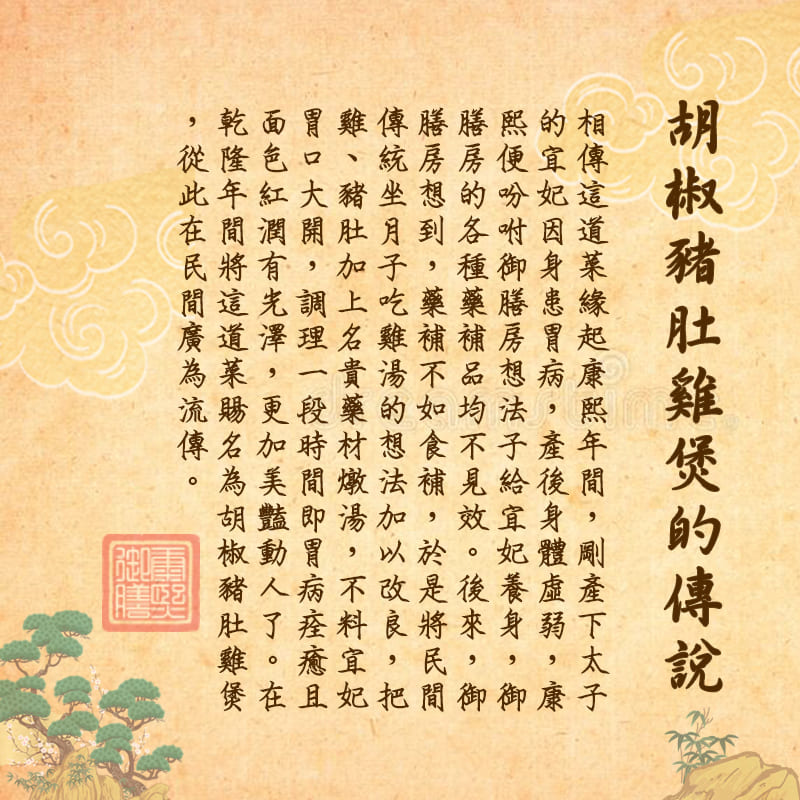 胡椒豬肚雞煲的傳說
相傳這道菜緣起康熙年間，剛產下太子
的宜妃因身患胃病，產後身體虛弱，康
熙便吩咐御膳房想法子給宜妃養身，御
膳房的各種藥補品均不見效。後來，御
膳房想到，藥補不如食補，於是將民間
傳統坐月子吃雞湯的想法加以改良，把
雞、豬肚加上名貴藥材燉湯，不料宜妃
胃口大開，調理一段時間即胃病痊癒且
面色紅潤有光澤，更加美豔動人了。在
乾隆年間將這道菜賜名為胡椒豬肚雞煲
，從此在民間廣為流傳。
康熙
御膳